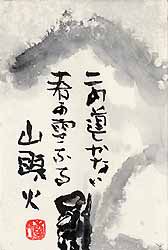 この道しかない
春の雪ふる
山頭火